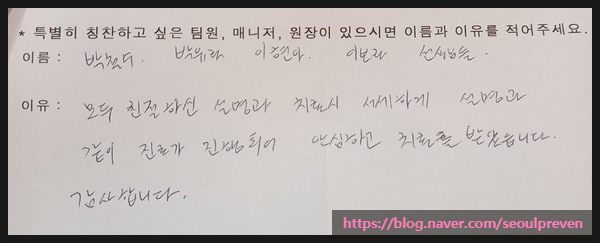 * 특별히 칭찬하고 싶은 팀원, 매니저, 원장이 있으시면 이름과 이유를 적어주세요.
이름 : 이보라 선생님들.
이유 : 모두 친절하신 설명과 치료시 세세하게 설명과
같이 진료가 진행되어 안심하고 치료를 받았습니다.
감사합니다.
https://blog.naver.com/seoulpreven